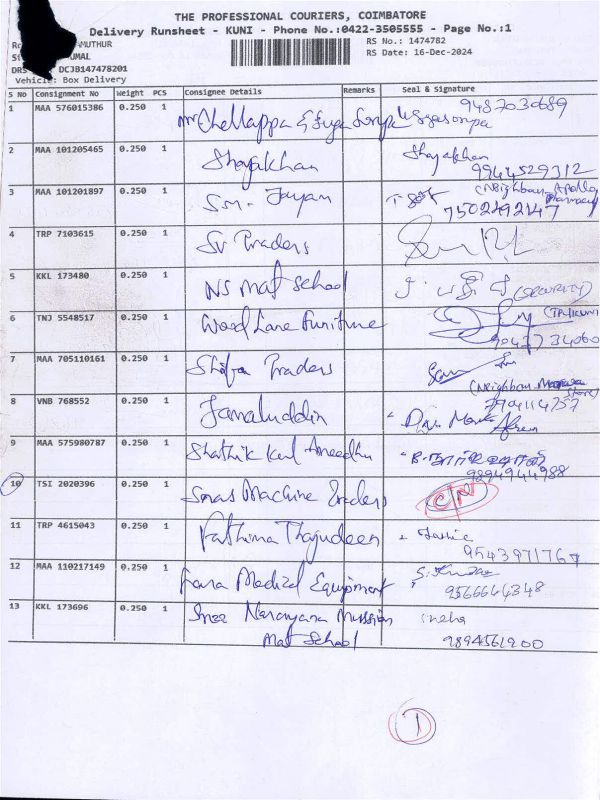 THE PROFESSIONAL COURIERS, COIMBATORE
Delivery Runsheet - KUNI - Phone No.:0422-3505555 - Page No.:1
AMUTHUR RS No.: 1474782
UMAL RS Date: 16-Dec-2024
DRS DCJB147478201
Vehicle: Box Delivery
S No Consignment No Weight PCS Consignee Details Remarks Seal & Signature
1 MAA 576015386 0.250 1 Mr Chellappa &
2 MAA 101205465 0.250 1 Shayakhan Shayakhan
9944529312
3 MAA 101201897 0.250 1 S.M. Jayam (Neighbour Apollo
Pharmacy)
7502492147
4 TRP 7103615 0.250 1 Sv Traders
5 KKL 173480 0.250 1 NS Mat School (SECURITY)
6 TNJ 5548517 0.250 1 Wood Lane Furniture
7 MAA 705110161 0.250 1 Shifa Traders
(Neighbour
Store)
8 VNB 768552 0.250 1 Jamaluddin
9 MAA 575980787 0.250 1 Shathik
9894944988
10 TSI 2020396 0.250 1 Smas Machine Traders CN
11 TRP 4615043 0.250 1 Fathima Thajudeen
9543971767
12 MAA 110217149 0.250 1 Medical Equipment
9566644348
13 KKL 173696 0.250 1 Sree Narayana Mission
Mat School 9894561200
1